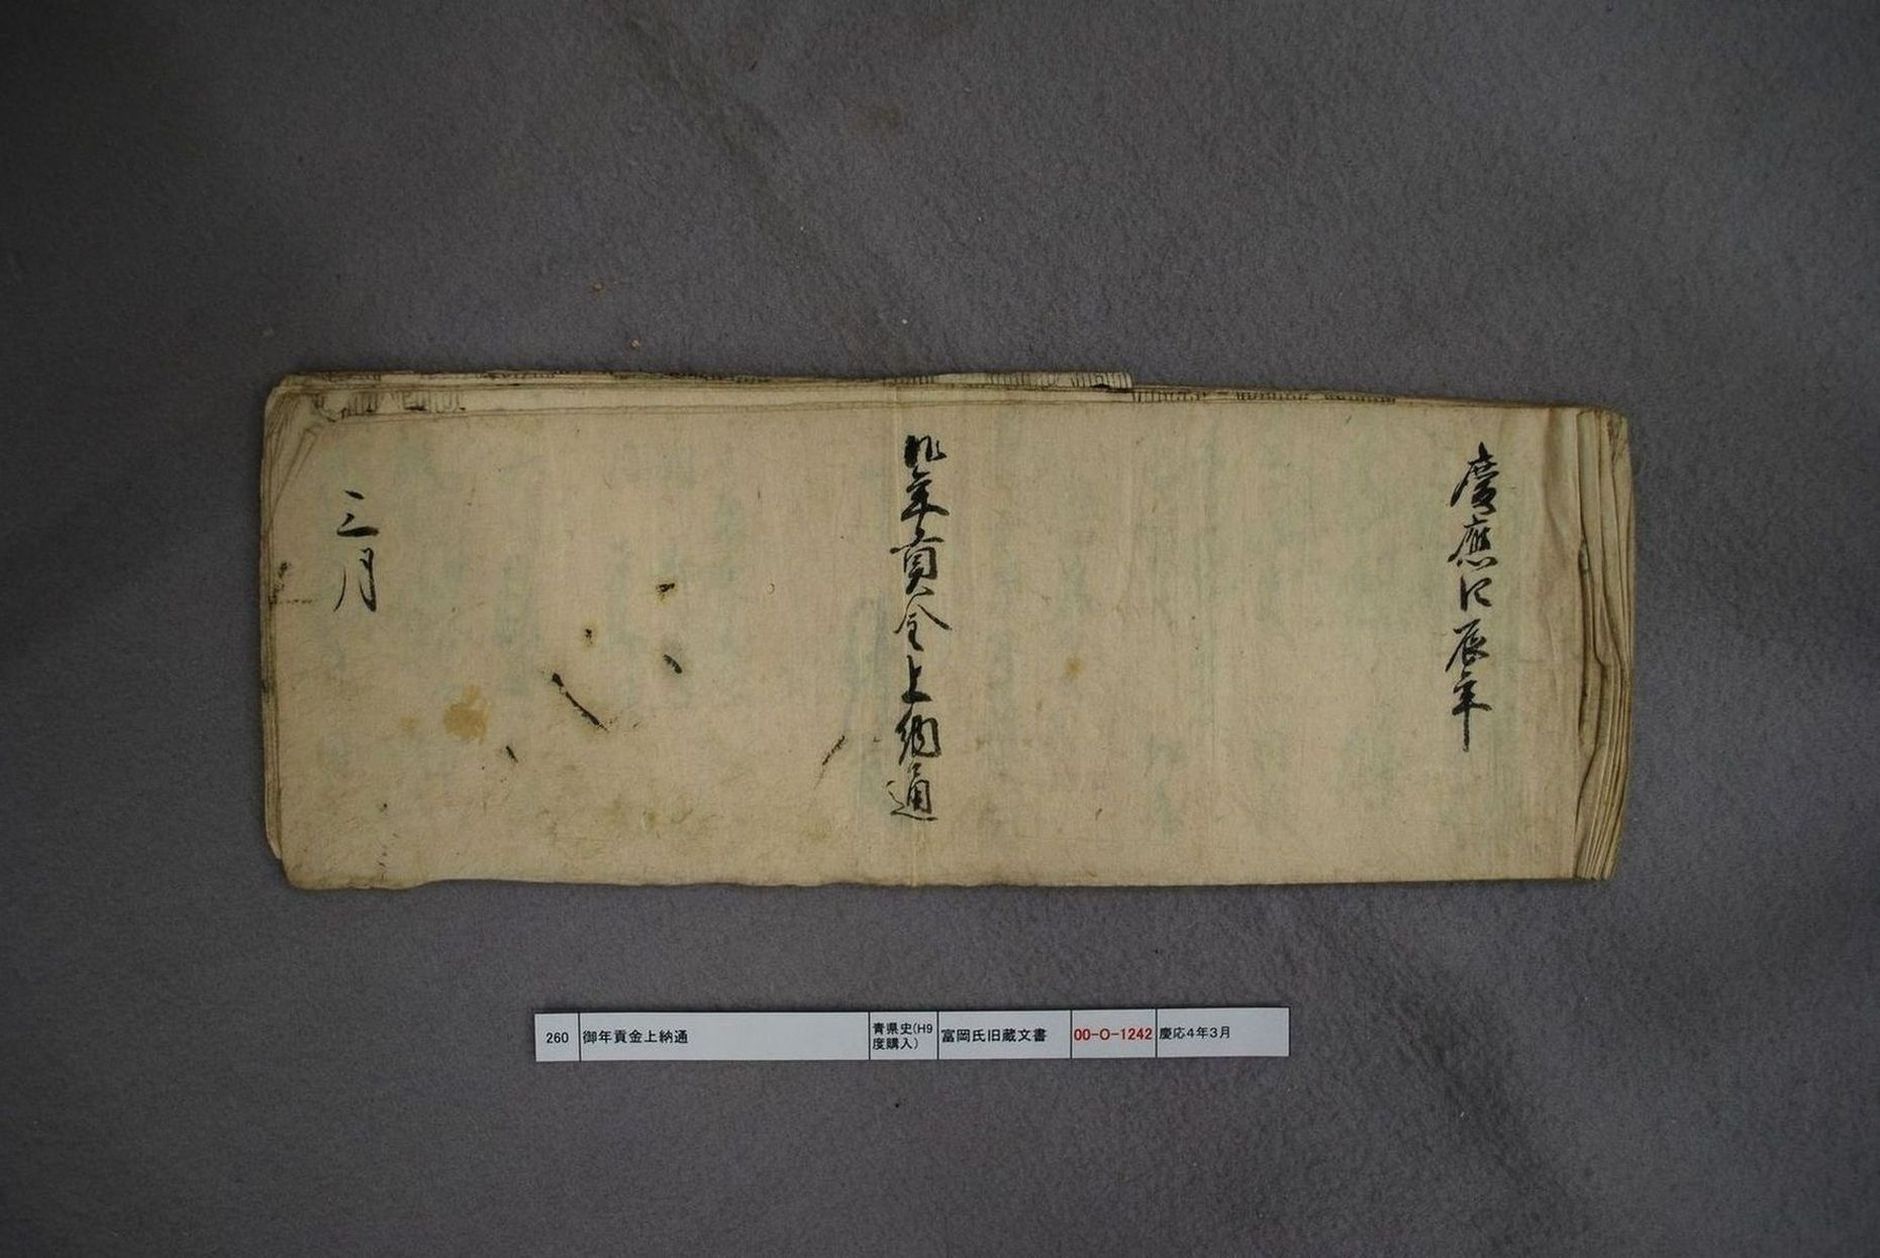 慶應四辰年
御年貢金上納通
三月
260 御年貢金上納通 青県史(H9度購入) 富岡氏旧蔵文書 00-O-1242 慶応4年3月